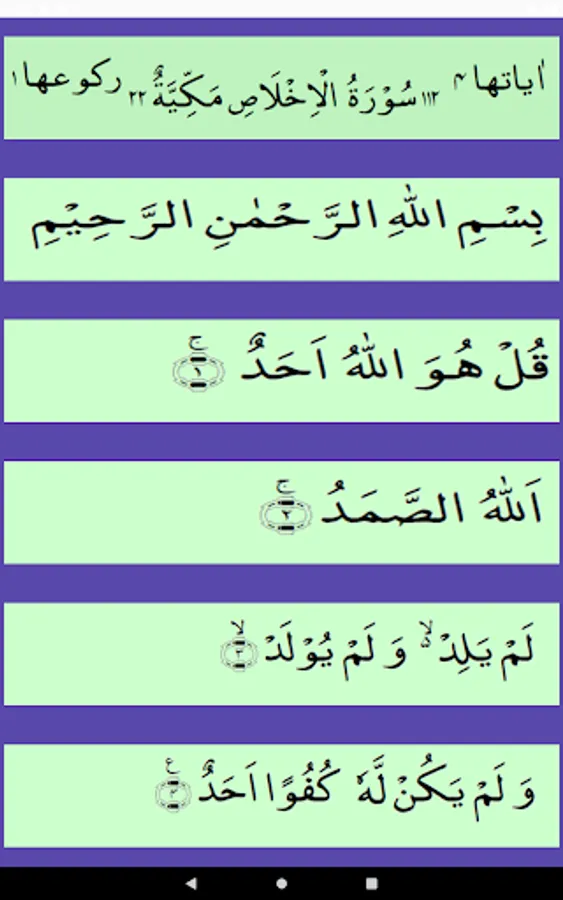 اٰیاتها ۴ ۱۱۲ سُوْرَةُ الْاِخْلَاصِ مَكِّيَّةٌ ۲۲ ركوعها ۱
بِسْمِ اللّٰهِ الرَّحْمٰنِ الرَّحِيْمِ
قُلْ هُوَ اللّٰهُ اَحَدٌ ۚ‏ ﴿۱﴾
اَللّٰهُ الصَّمَدُ ۚ‏ ﴿۲﴾
لَمْ يَلِدْ ۙ۬ وَ لَمْ يُوْلَدْ ۙ‏ ﴿۳﴾
وَ لَمْ يَكُنْ لَّهٗ كُفُوًا اَحَدٌ ﴿۴﴾